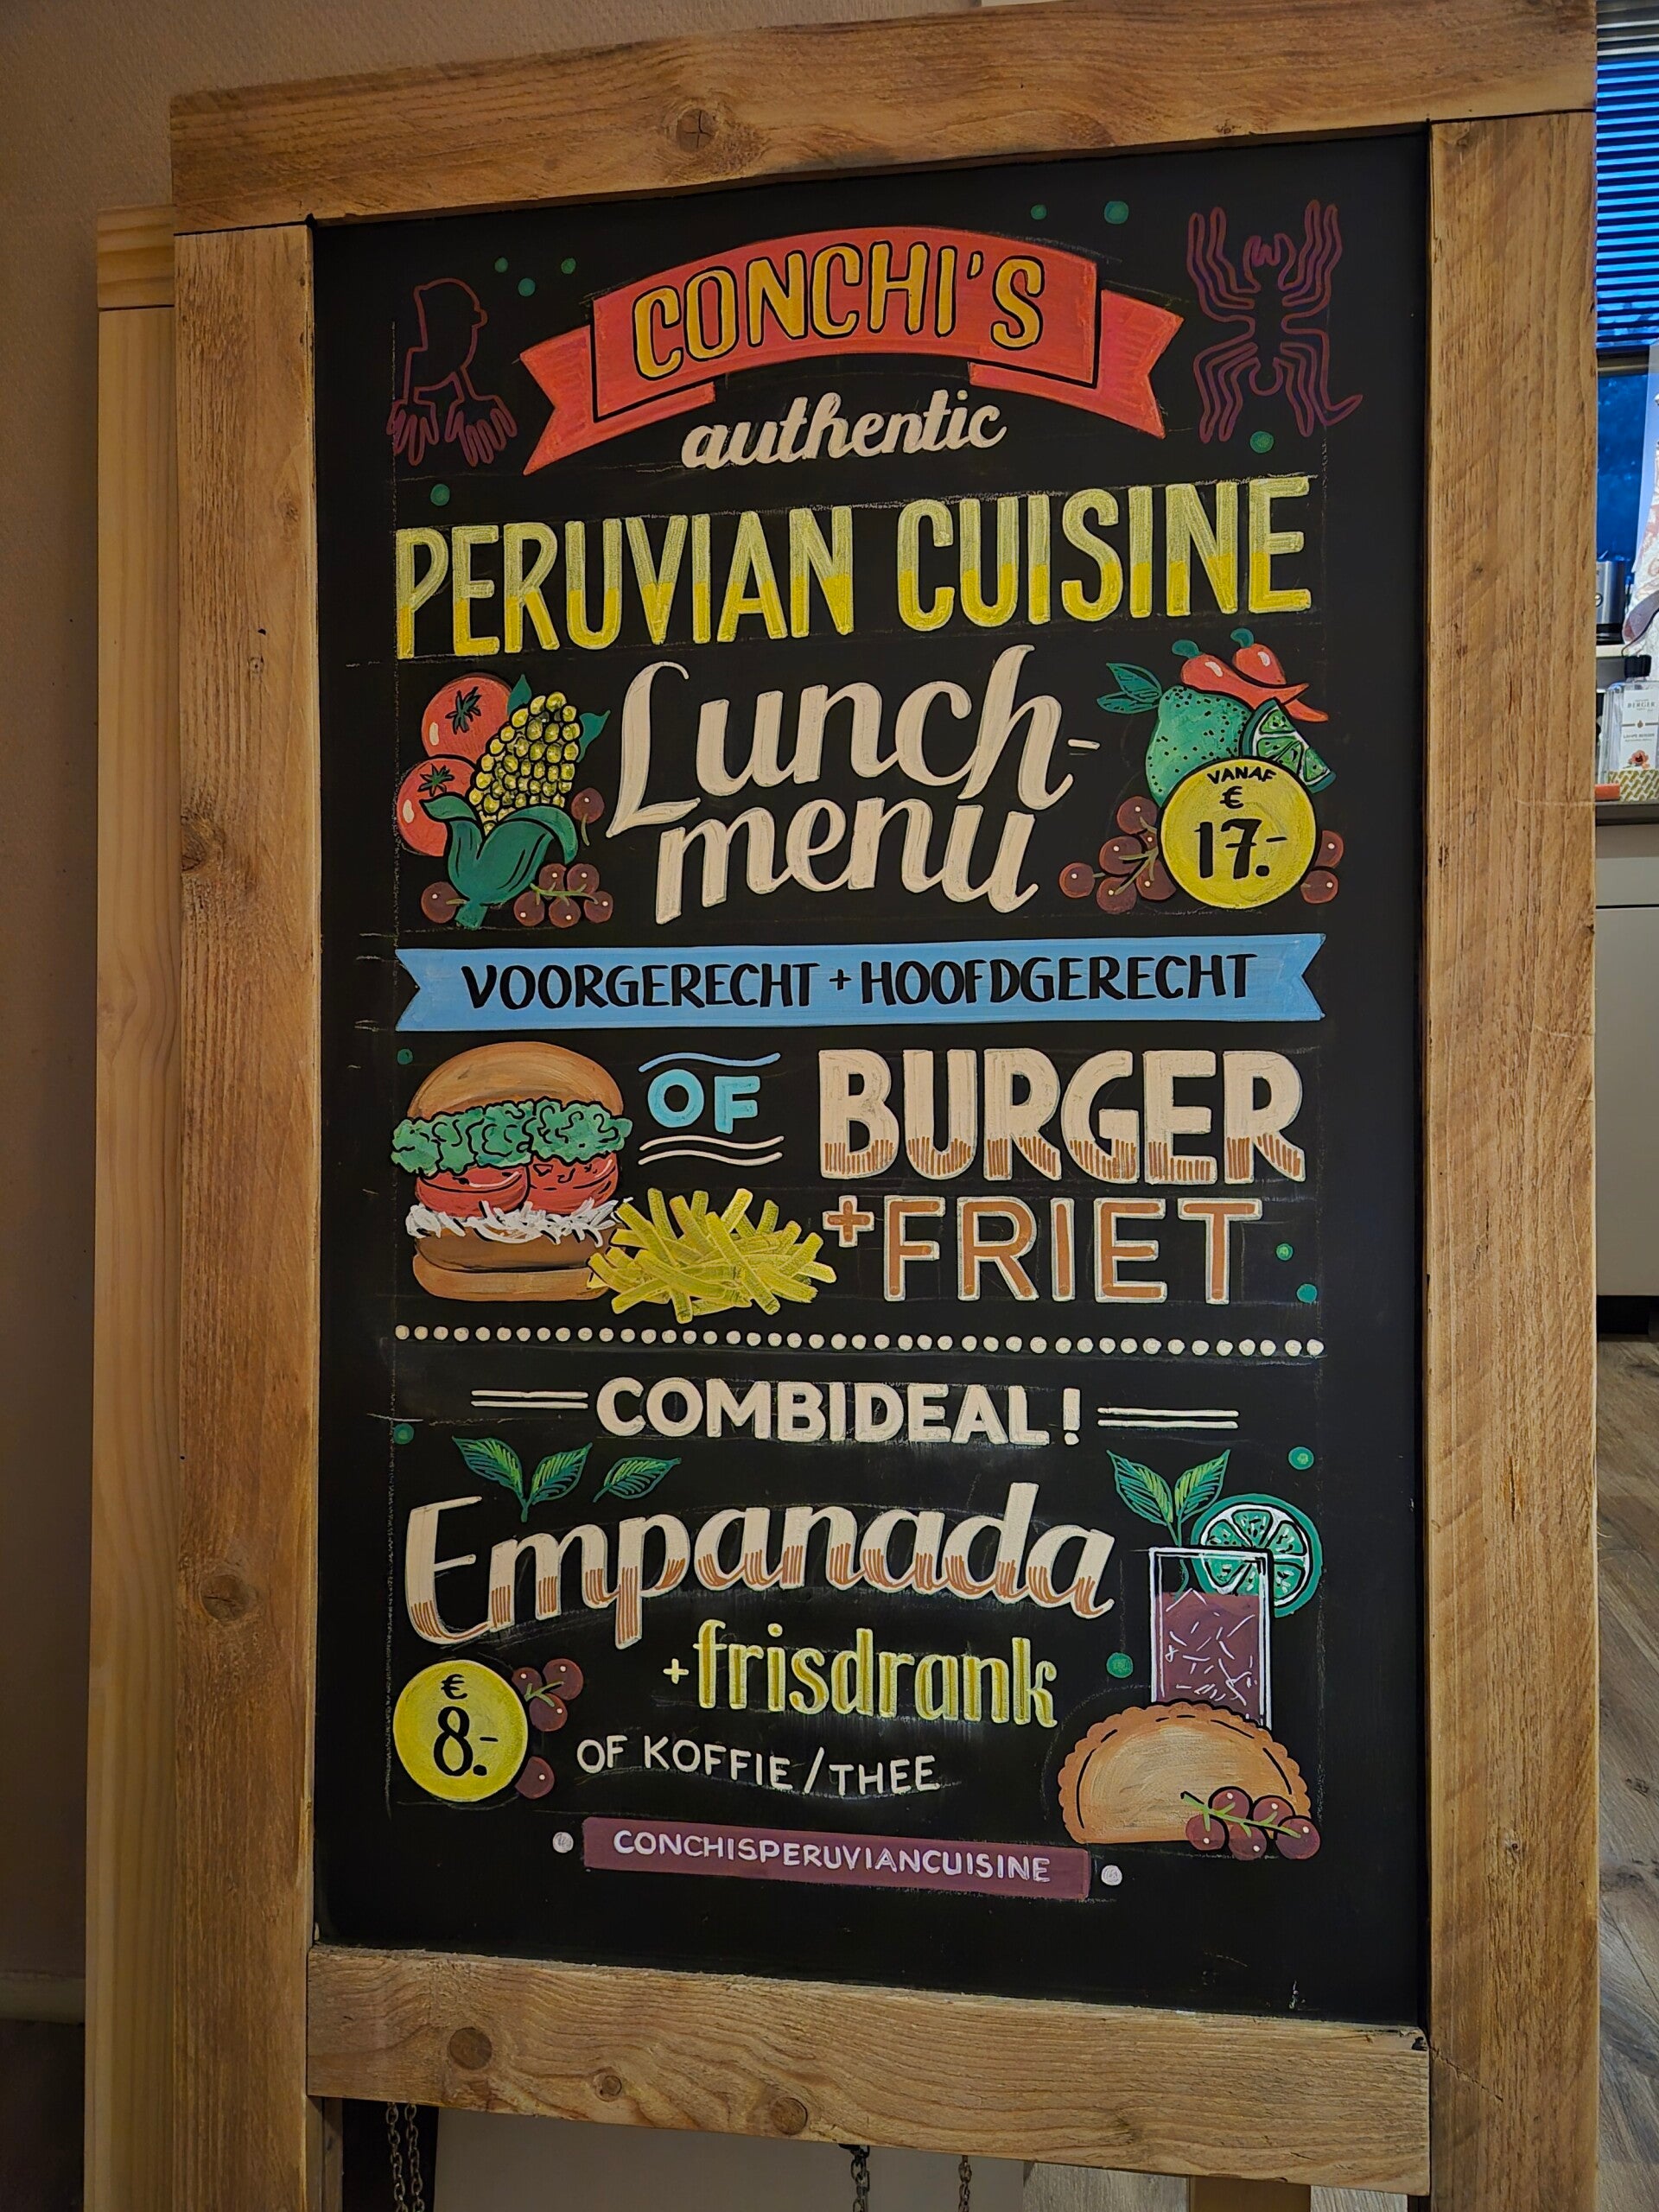 CONCHI'S
authentic
PERUVIAN CUISINE
Lunch-
menu
VANAF
€
17.-
VOORGERECHT + HOOFDGERECHT
OF BURGER
+ FRIET
COMBIDEAL!
Empanada
+ frisdrank
€
8.-
OF KOFFIE / THEE
CONCHISPERUVIANCUISINE
BERGER